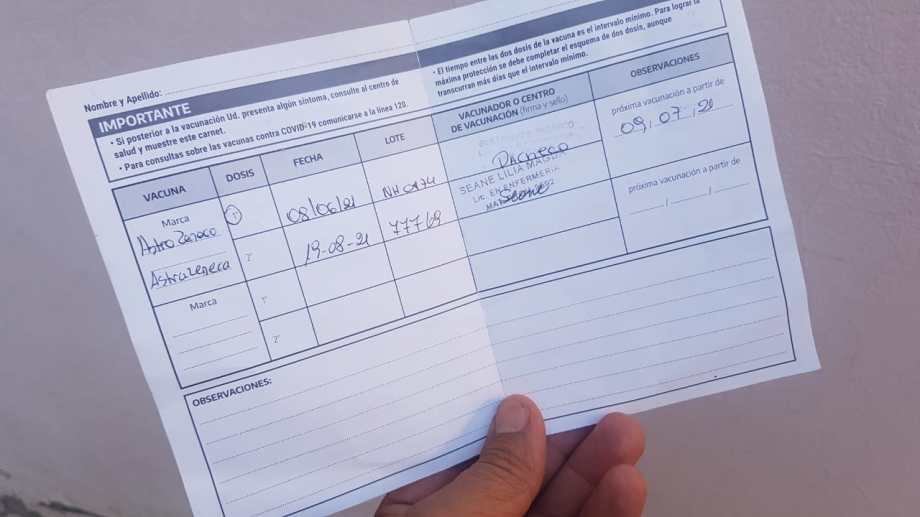 Nombre y Apellido:
IMPORTANTE
• Si posterior a la vacunación Ud. presenta algún síntoma, consulte al centro de
salud y muestre este carnet.
• Para consultas sobre las vacunas contra COVID-19 comunicarse a la línea 120.
• El tiempo entre las dos dosis de la vacuna es el intervalo mínimo. Para lograr la
máxima protección se debe completar el esquema de dos dosis, aunque
transcurran más días que el intervalo mínimo.
VACUNA
DOSIS
FECHA
LOTE
VACUNADOR O CENTRO
DE VACUNACIÓN (firma y sello)
OBSERVACIONES
Marca
AstraZeneca
1°
08/06/21
Pacheco
próxima vacunación a partir de
09/07/21
Astrazeneca
2°
19-08-21
777/09
SEANE LILIA MAGDA
LIC. EN ENFERMERIA
Seane
próxima vacunación a partir de
Marca
1°
2°
OBSERVACIONES: